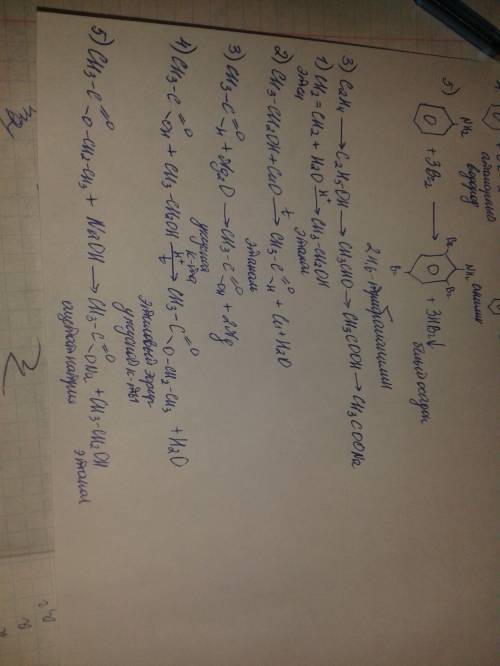 5) NH2 + 3Br2 ⟶ Br Br NH2 Br + 3HBr↓
анилин
2,4,6-триброманилин
белый осадок
3) C2H4 ⟶ C2H5OH ⟶ CH3CHO ⟶ CH3COOH ⟶ CH3COONa
1) CH2=CH2 + H2O H+⟶ CH3-CH2OH
этен этанол
2) CH3-CH2OH + CuO t⟶ CH3-C=O-H + Cu + H2O
этаналь
3) CH3-C=O-H + Ag2O ⟶ CH3-C=O-OH + 2Ag
уксусная к-та
4) CH3-C=O-OH + CH3-CH2OH H+ t⟶ CH3-C=O-O-CH2-CH3 + H2O
этиловый эфир
уксусной к-ты
5) CH3-C=O-O-CH2-CH3 + NaOH ⟶ CH3-C=O-ONa + CH3-CH2OH
ацетат натрия этанол